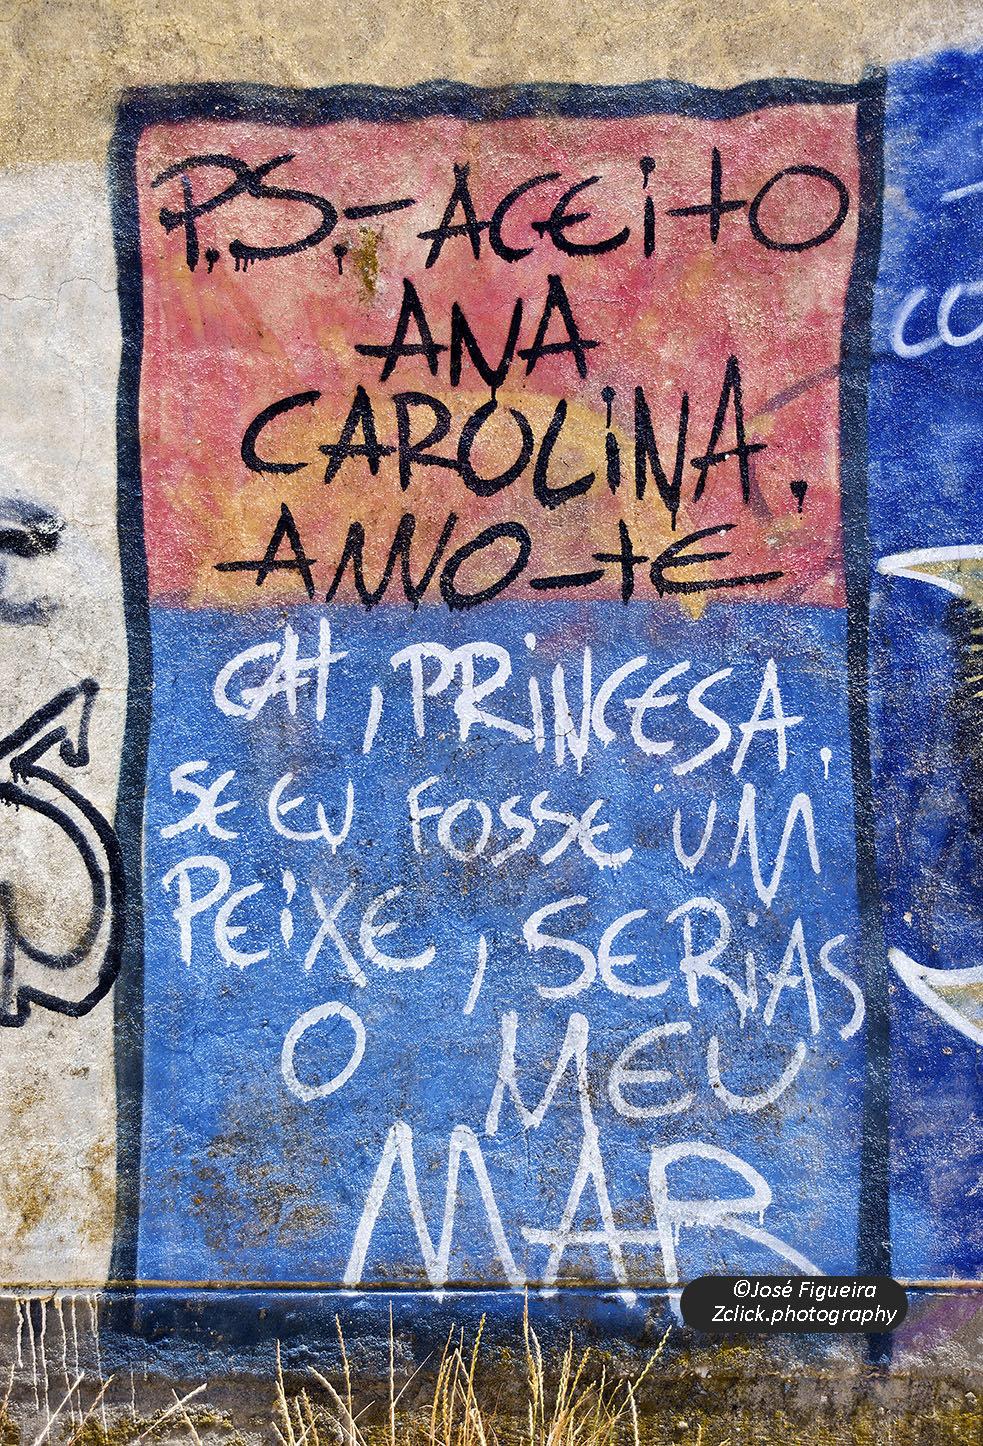 P.S.-ACEiTO
ANA
CAROLiNA.
AMO-TE
AH, PRiNCESA.
SE EU FOSSE UM
PEiXE, SERiAS
O MEU
MAR
CO
©José Figueira
Zclick.photography